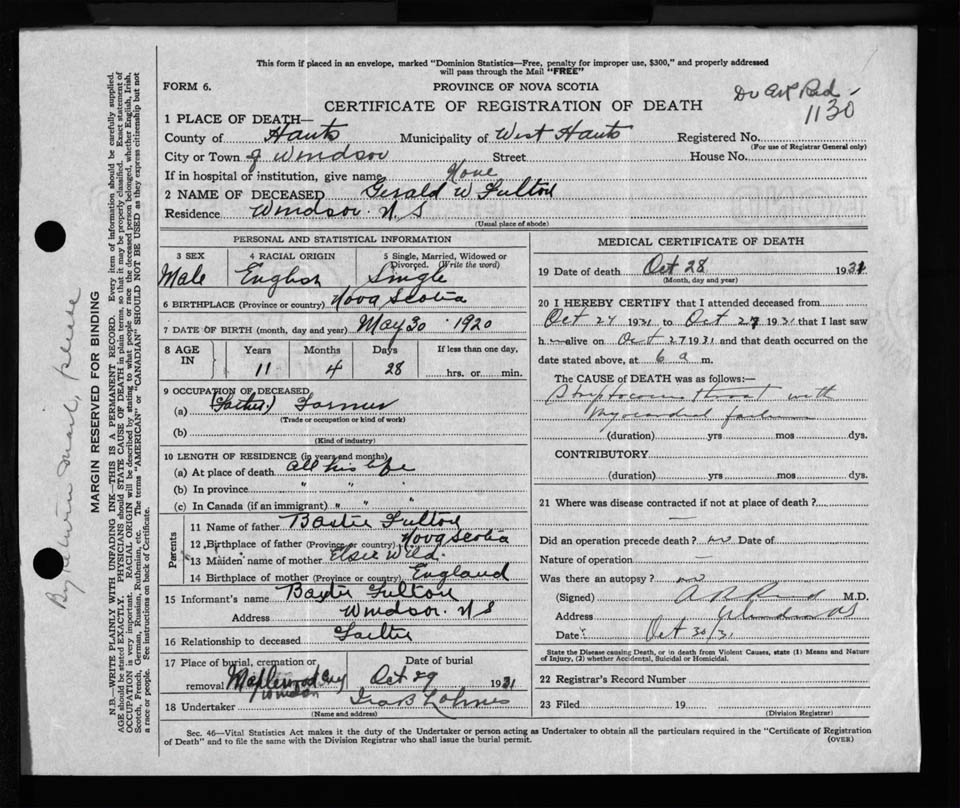 This form if placed in an envelope, marked "Dominion Statistics—Free, penalty for improper use, $300," and properly addressed
will pass through the Mail "FREE"
FORM 6.
PROVINCE OF NOVA SCOTIA
CERTIFICATE OF REGISTRATION OF DEATH
1130
1 PLACE OF DEATH—
County of Hants Municipality of West Hants Registered No.
(For use of Registrar General only)
City or Town of Windsor Street House No.
If in hospital or institution, give name None
2 NAME OF DECEASED Gerald W Fulton
Residence Windsor. N.S
(Usual place of abode)
PERSONAL AND STATISTICAL INFORMATION
3 SEX 4 RACIAL ORIGIN 5 Single, Married, Widowed or
Divorced. (Write the word)
Male English Single
6 BIRTHPLACE (Province or country) Nova Scotia
7 DATE OF BIRTH (month, day and year) May 30 1920
8 AGE IN Years Months Days If less than one day,
11 4 28 hrs. or min.
9 OCCUPATION OF DECEASED
(a) (Father) Farmer
(Trade or occupation or kind of work)
(b)
(Kind of industry)
10 LENGTH OF RESIDENCE (in years and months)
(a) At place of death all his life
(b) In province " "
(c) In Canada (if an immigrant) " "
Parents
11 Name of father Baxter Fulton
12 Birthplace of father (Province or country) Nova Scotia
13 Maiden name of mother Elsie Wild
14 Birthplace of mother (Province or country) England
15 Informant's name Baxter Fulton
Address Windsor. N S
16 Relationship to deceased Father
17 Place of burial, cremation or Date of burial
removal Maplewood Cemy Oct 29 1931
Windsor
18 Undertaker Ira B
(Name and address)
MEDICAL CERTIFICATE OF DEATH
19 Date of death Oct 28 1931
(Month, day and year)
20 I HEREBY CERTIFY that I attended deceased from
Oct 24 1931 to Oct 27 1931 that I last saw
h alive on Oct 27 1931 and that death occurred on the
date stated above, at 6 a m.
The CAUSE OF DEATH was as follows:—
Streptococcus throat with
myocardial failure
(duration) yrs mos dys.
CONTRIBUTORY
(duration) yrs. mos. dys.
21 Where was disease contracted if not at place of death?
—
Did an operation precede death? no Date of
Nature of operation —
Was there an autopsy? no
(Signed) M.D.
Address Windsor NS
Date Oct 30/31
State the Disease causing Death, or in death from Violent Causes, state (1) Means and Nature
of Injury, (2) whether Accidental, Suicidal or Homicidal.
22 Registrar's Record Number
23 Filed 19
(Division Registrar)
Sec. 46—Vital Statistics Act makes it the duty of the Undertaker or person acting as Undertaker to obtain all the particulars required in the "Certificate of Registration
of Death" and to file the same with the Division Registrar who shall issue the burial permit.
(OVER)
MARGIN RESERVED FOR BINDING
N.B.—WRITE PLAINLY WITH UNFADING INK—THIS IS A PERMANENT RECORD. Every item of information should be carefully supplied.
AGE should be stated EXACTLY. PHYSICIANS should STATE CAUSE OF DEATH in plain terms, so that it may be properly classified. Exact statement of
OCCUPATION is very important. RACIAL ORIGIN will be described by stating to what people or race the deceased person belonged, whether English, Irish,
Scotch, French, German, Russian, Ruthenian, etc. The terms "AMERICAN" or "CANADIAN" SHOULD NOT BE USED as they express citizenship but not
a race or people. See instructions on back of Certificate.
By return mail, please